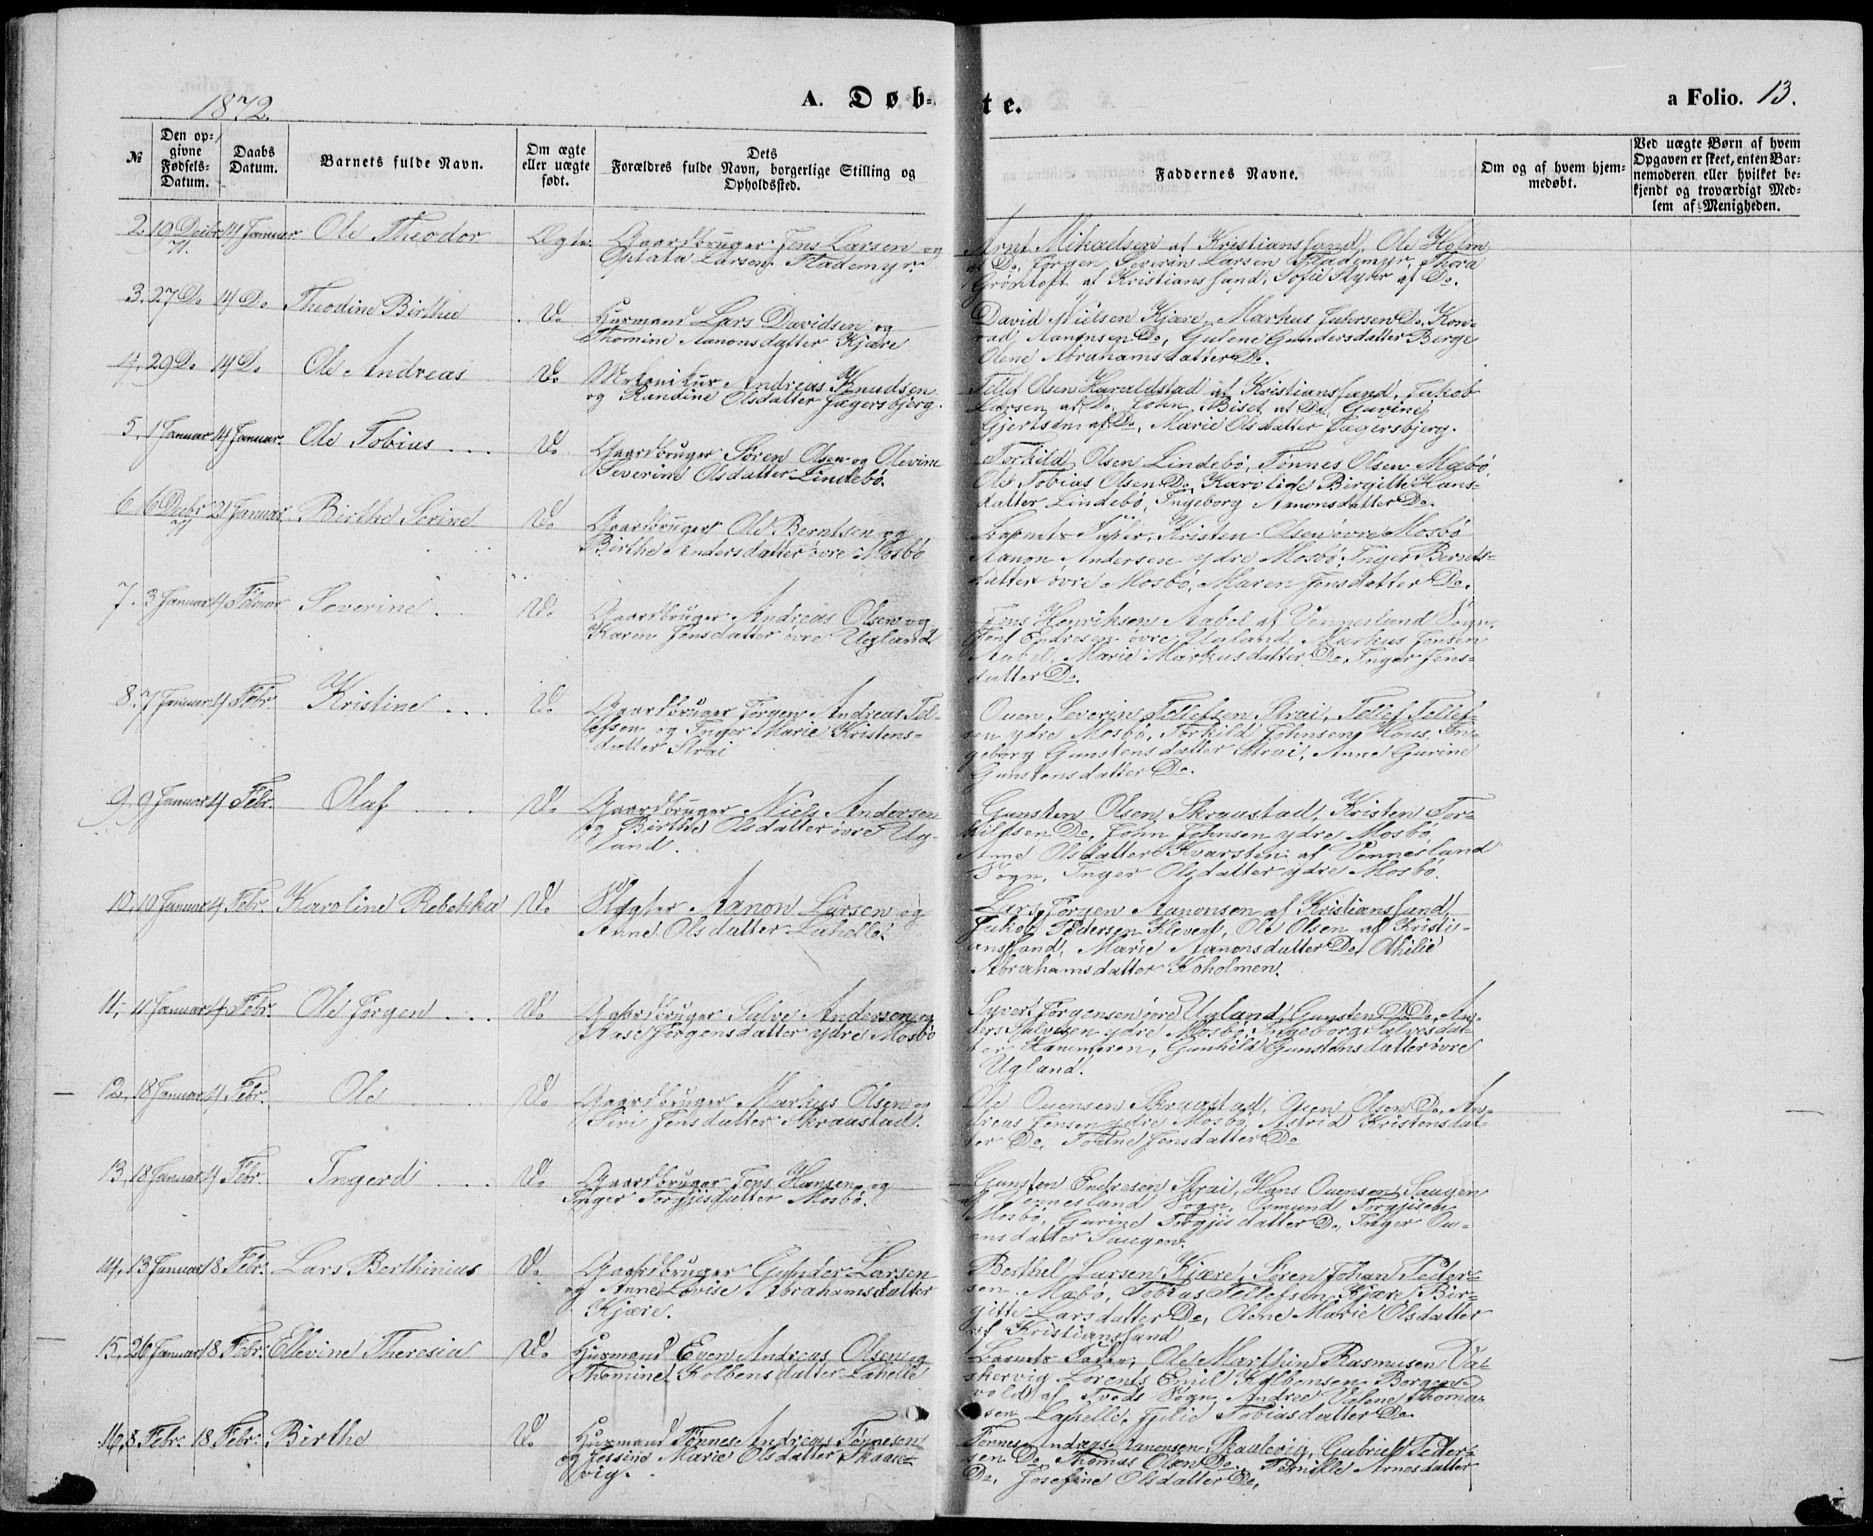 1872.
A. Døb-
te.
a Folio. 13.
№
Den op-
givne
Fødsels-
Datum.
Daabs
Datum.
Barnets fulde Navn.
Om ægte
eller uægte
født.
Dets
Forældres fulde Navn, borgerlige Stilling og
Opholdssted.
Faddernes Navne.
Om og af hvem hjem-
medøbt.
Ved uægte Børn af hvem
Opgaven er skeet, enten Bar-
nemoderen eller hvilket be-
kjendt og troværdigt Med-
lem af Menigheden.
2. 19 Decbr 14 Januar Ole Theodor Ægte Gaardbruger Jens Larsen og
71. Optata Larsen Flademyr.
Arnt Mikaelsen af Kristianssand, Ole Holm
af Do, Jørgen Severin Larsen Flademyr, Thora
Grøntoft af Kristianssand, Sofie af Do.
3. 27 Do 14 Do Theodine Birthe Do Husmand Lars Davidsen og
Thomine Aanonsdatter Kjære
David Nielsen Kjære, Markus Do, Kon-
rad Aanonsen Do, Gulene Gundersdatter Berge
Olene Abrahamsdatter Do.
4. 29 Do 14 Do Ole Andreas Do Andreas Knudsen
og Randine Olsdatter Jægersbjerg.
Tellef Olsen Haraldstad af Kristianssand, Jakob
Larsen af Do, John Biset af Do, Gurine
Gjertsen af Do, Marie Olsdatter Jægersbjerg.
5. 1 Januar 14 Januar. Ole Tobias Do Gaardbruger Søren Olsen og Olevine
Severine Olsdatter Lindebø.
Torkild Olsen Lindebø, Tønnes Olsen Mæbø
Ole Tobias Olsen Do, Karolide Birgitte Hans-
datter Lindebø, Ingeborg Aanonsdatter Do.
6 6 Decbr 21 Januar Birthe Serine Do Gaardbruger Ole Berntsen og
71 Birthe Andersdatter øvre Mosbø
Barnets Fader, Kristen Olsen øvre Mosbø
Aanon Andersen ydre Mosbø, Inger Bernts-
datter øvre Mosbø, Maren Jensdatter Do.
7. 3 Januar 4 Februar Severine. Do Gaardbruger Andreas Olsen og
Karen Jensdatter øvre Ugland.
Jens Henriksen Aabel af Vennesland Sogn,
Endresen øvre Ugland, Markus Jensen
Aabel, Marie Markusdatter Do, Inger Jens-
datter Do.
8. 7 Januar 4 Febr. Kristine Do Gaardbruger Jørgen Andreas Tel-
lefsen og Inger Marie Kristens-
datter Strai
Ouen Severin Tellefsen Strai, Tellef Tellef-
sen ydre Mosbø, Torkild Johnsen Haus, In-
geborg Gunstensdatter Strai, Anne Gurine
Gunstensdatter Do.
9. 9 Januar 4 Febr. Olaf Do Gaardbruger Niels Andersen
og Birthe Olsdatter øvre Ug-
land.
Gunsten Olsen Skraustad, Kristen Tor-
kildsen Do, John Johnsen ydre Mosbø
Anne Olsdatter Kvarsten af Vennesland
Sogn, Inger Olsdatter ydre Mosbø.
10. 10 Januar 4 Febr. Karoline Rebekka Do Slagter Aanon Larsen og
Anne Olsdatter Lahelle.
Lars Jørgen Aanonsen af Kristianssand,
Jakob Pedersen Kleven, Ole Olsen af Kristi-
anssand, Marie Aanonsdatter Do, Othilie
Abrahamsdatter Koholmen.
11. 11 Januar 4 Febr. Ole Jørgen Do Gaardbruger Salve Andersen og
Aase Jørgensdatter ydre Mosbø
Syvert Jørgensen øvre Ugland, Gunsten Do, An-
ders Salvesen ydre Mosbø, Ingeborg Salvesdat-
ter Hammeren, Gunhild Gunstensdatter øvre
Ugland.
12. 18 Januar 4 Febr. Ole Do Gaardbruger Markus Olsen og
Siri Jensdatter Skraustad.
Ole Ouensen Skraastad, Ouen Olsen Do, An-
dreas Jensen ydre Mosbø, Astrid Kristensdat-
ter Do, Tomine Jensdatter Do
13. 18 Januar 4 Febr. Ingerd Do Gaardbruger Jens Hansen og
Inger Torgjusdatter Mosbø.
Gunsten Endresen Strai, Hans Ouensen Saugen
af Vennesland Sogn, Osmund Torgjusen
Mosbø, Gurine Torgjusdatter Do, Inger Ou-
ensdatter Saugen.
14. 13 Januar 18 Febr. Lars Berthinius Do Gaardbruger Gunder Larsen
og Anne Lovise Abrahamsdatter
Kjære.
Berthel Larsen Kjære, Søren Johan Peder-
sen Mæbø, Tobias Tellefsen Kjære, Bir-
gitte Larsdatter Do, Olene Marie Olsdatter
af Kristianssand
15. 26 Januar 18 Febr. Ellevine Theresia Do Husmand Even Andreas Olsen og
Thomine Kolbensdatter Lahelle
Barnets Fader, Ole Marthin Rasmusen Va-
skervig, Lorents Emil Kolbensen Borgen-
vold af Tveds Sogn, Andrea Velene Thoma-
sen Lahelle, Julie Tobiasdatter Do
16. 8 Febr. 18 Febr. Birthe Do Husmand Tønnes Andreas Tønnesen
og Jessine Marie Olsdatter Skaale-
vig.
Tønnes Andreas Aanonsen Skaalevig, Gabriel Peder-
sen Do, Thomas Olsen Do, Pernille Arnesdatter
Do, Josefine Olsdatter Do.